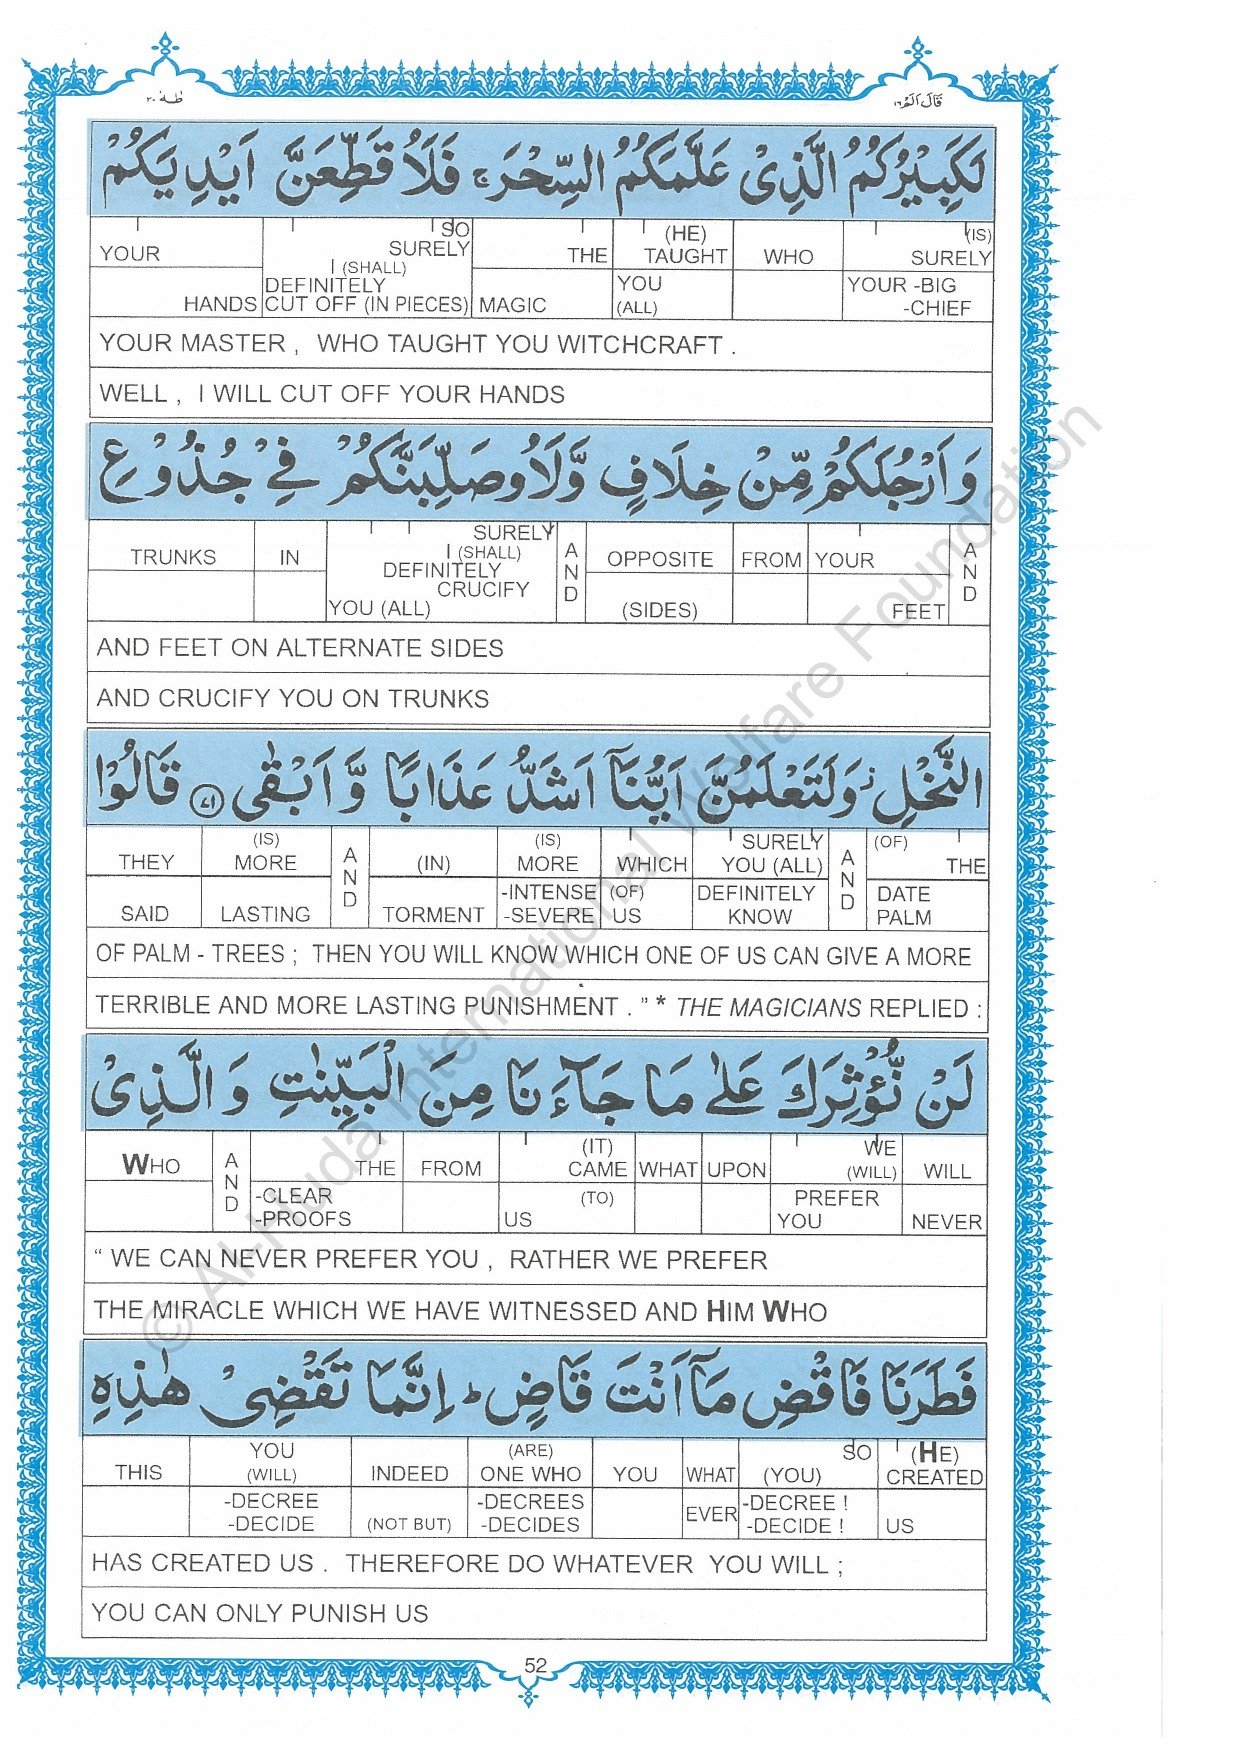 طٰهٰ ٢٠
قَالَ اَلَمْ ١٦
لَكَبِيْرُكُمُ الَّذِىْ عَلَّمَكُمُ السِّحْرَ ۚ فَلَاُ قَطِّعَنَّ اَيْدِيَكُمْ
YOUR SO SURELY I (SHALL) THE (HE) TAUGHT WHO (IS) SURELY
HANDS DEFINITELY CUT OFF (IN PIECES) MAGIC YOU (ALL) YOUR -BIG -CHIEF
YOUR MASTER , WHO TAUGHT YOU WITCHCRAFT .
WELL , I WILL CUT OFF YOUR HANDS
وَ اَرْجُلَكُمْ مِّنْ خِلَافٍ وَّلَاُوصَلِّبَنَّكُمْ فِىْ جُذُوْعِ
TRUNKS IN SURELY I (SHALL) DEFINITELY CRUCIFY AND OPPOSITE FROM YOUR AND
YOU (ALL) (SIDES) FEET
AND FEET ON ALTERNATE SIDES
AND CRUCIFY YOU ON TRUNKS
النَّخْلِ ۡ وَلَتَعْلَمُنَّ اَيُّنَاۤ اَشَدُّ عَذَابًا وَّ اَبْقٰى ﴿٧١﴾ قَالُوْا
THEY (IS) MORE AND (IN) (IS) MORE WHICH SURELY YOU (ALL) AND (OF) THE
SAID LASTING TORMENT -INTENSE -SEVERE (OF) US DEFINITELY KNOW DATE PALM
OF PALM - TREES ; THEN YOU WILL KNOW WHICH ONE OF US CAN GIVE A MORE
TERRIBLE AND MORE LASTING PUNISHMENT . " * THE MAGICIANS REPLIED :
لَنْ نُّؤْثِرَكَ عَلٰى مَا جَآءَ نَا مِنَ الْبَيِّنٰتِ وَ الَّذِىْ
WHO AND THE FROM (IT) CAME WHAT UPON WE (WILL) WILL
-CLEAR -PROOFS (TO) US PREFER YOU NEVER
" WE CAN NEVER PREFER YOU , RATHER WE PREFER
THE MIRACLE WHICH WE HAVE WITNESSED AND HIM WHO
فَطَرَنَا فَاقْضِ مَاۤ اَنْتَ قَاضٍ ؕ اِنَّمَا تَقْضِىْ هٰذِهِ
THIS YOU (WILL) INDEED (ARE) ONE WHO YOU WHAT SO (YOU) (HE) CREATED
-DECREE -DECIDE (NOT BUT) -DECREES -DECIDES EVER -DECREE ! -DECIDE ! US
HAS CREATED US . THEREFORE DO WHATEVER YOU WILL ;
YOU CAN ONLY PUNISH US
52
© Al-Huda International Welfare Foundation